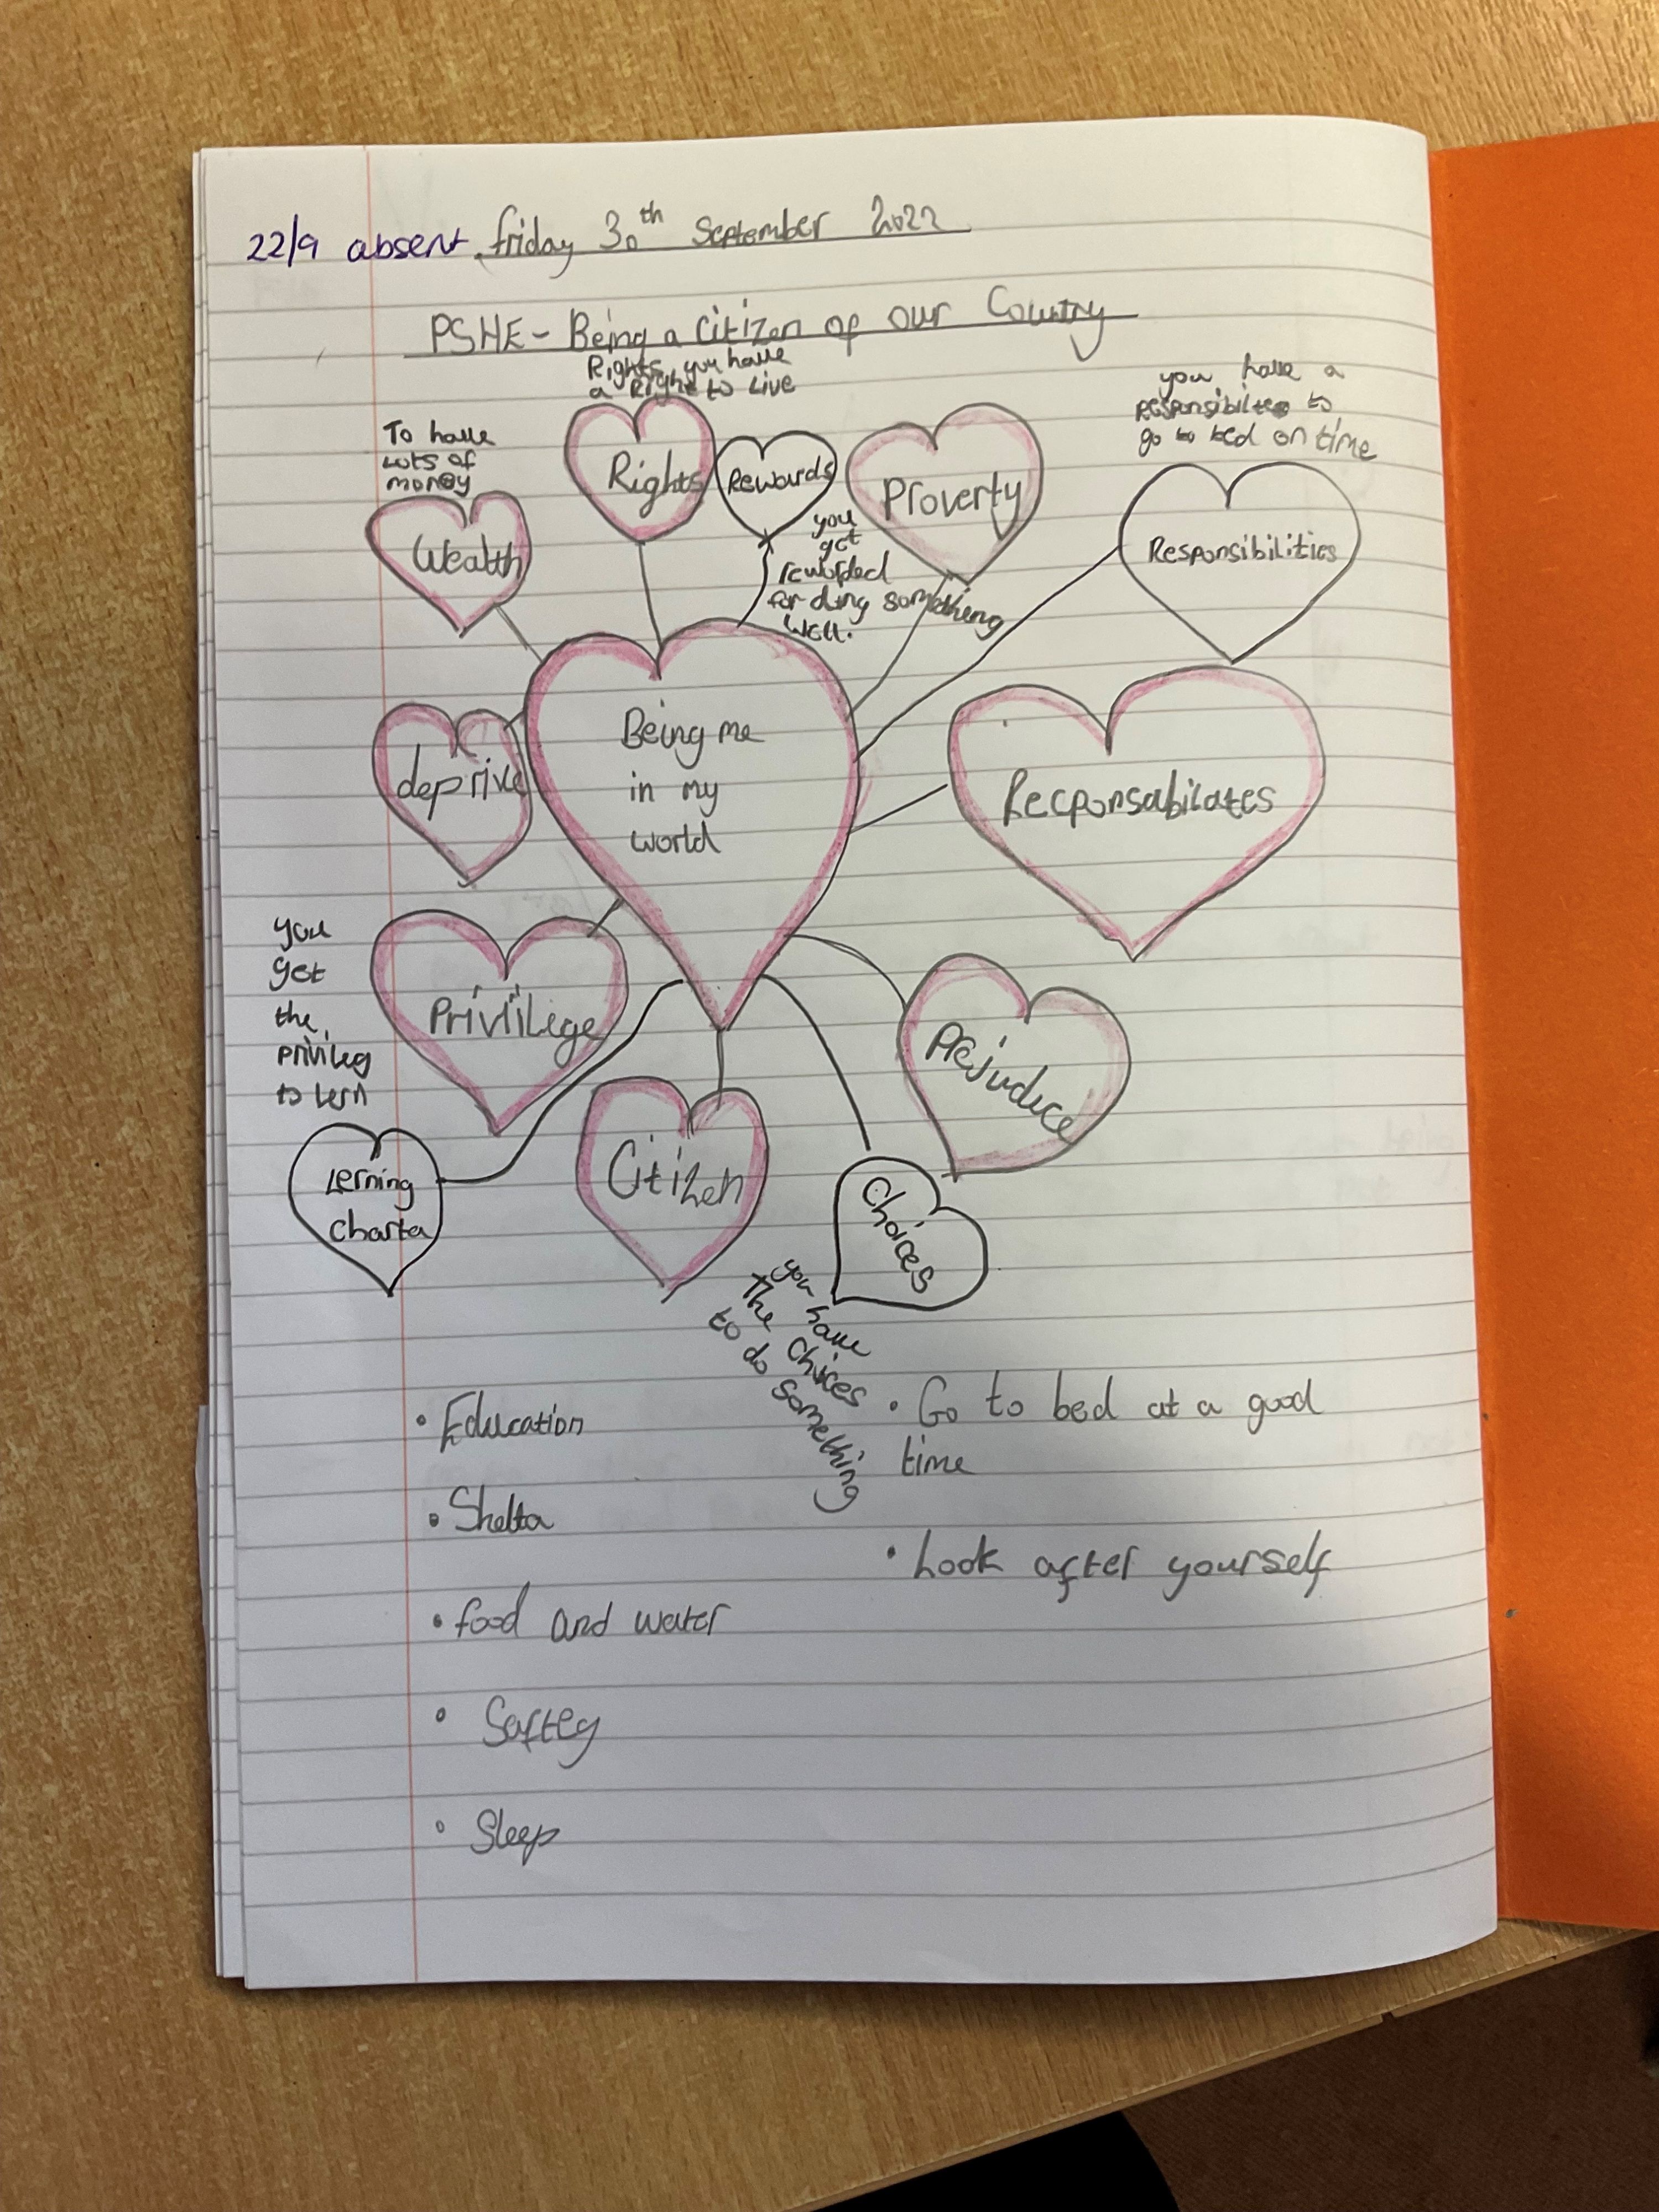 22/9 absent. friday 30th September 2022
PSHE - Being a Citizen of our Country
Rights, you have
a Right to Live
you have a
responsibiltes to
go to bed on time
To have
lots of
money
Rights
Rewards
Proverty
Wealth
Responsibilities
you
get
rewarded
for ding something
well.
Being me
in my
world
deprive
Recponsabilates
you
get
the
privileg
to lern
Privilege
Prejuduce
Lerning
Charta
Citizen
Choices
you have
The Choices
to do something
• Education
• Shelta
• food and water
• Saftey
• Sleep
• Go to bed at a good
time
• Look after yourself